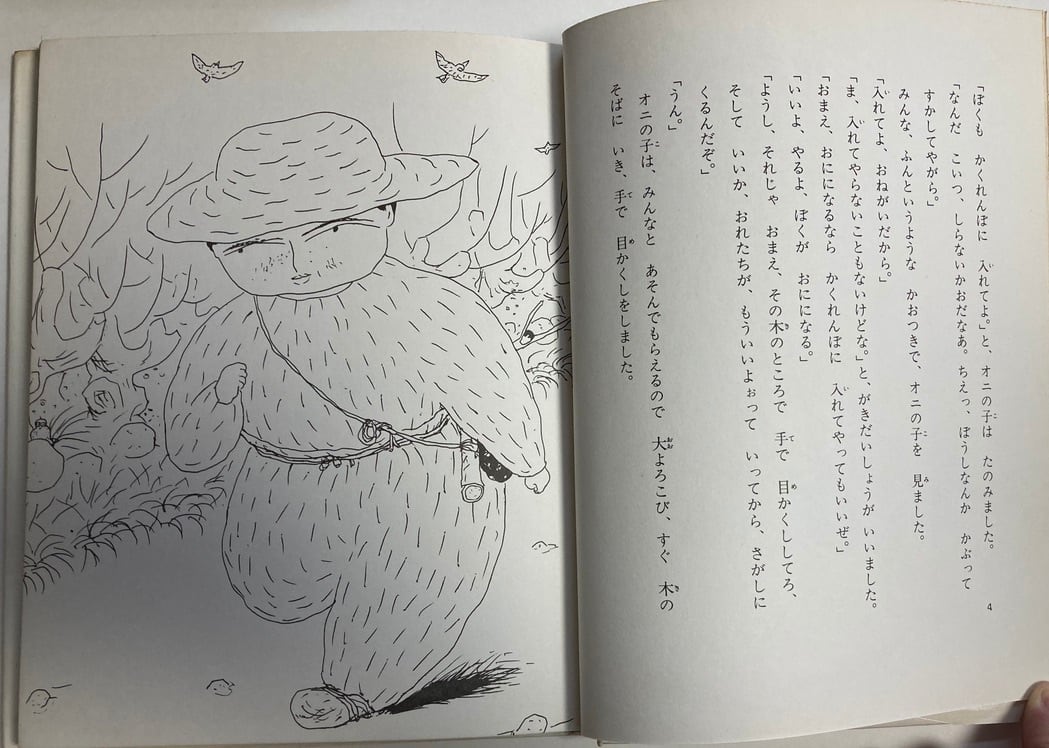 「ぼくも　かくれんぼに　入れてよ。」と、オニの子は　たのみました。
「なんだ　こいつ、しらないかおだなあ。ちえっ、ぼうしなんか　かぶって
すかしてやがら。」
みんな、ふんというような　かおつきで、オニの子を　見ました。
「入れてよ、おねがいだから。」
「ま、入れてやらないこともないけどな。」と、がきだいしょうが　いいました。
「おまえ、おにになるなら　かくれんぼに　入れてやってもいいぜ。」
「いいよ、やるよ、ぼくが　おにになる。」
「ようし、それじゃ　おまえ、その木のところで　手で　目かくしてろ、
そして　いいか、おれたちが、もういいよぉって　いってから、さがしに
くるんだぞ。」
「うん。」
オニの子は、みんなと　あそんでもらえるので　大よろこび、すぐ　木の
そばに　いき、手で　目かくしをしました。
4